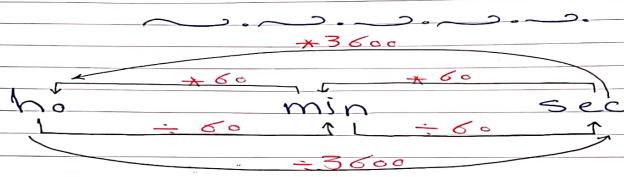 *3600
*60 *60
ho min sec
÷ 60 ÷ 60
÷3600